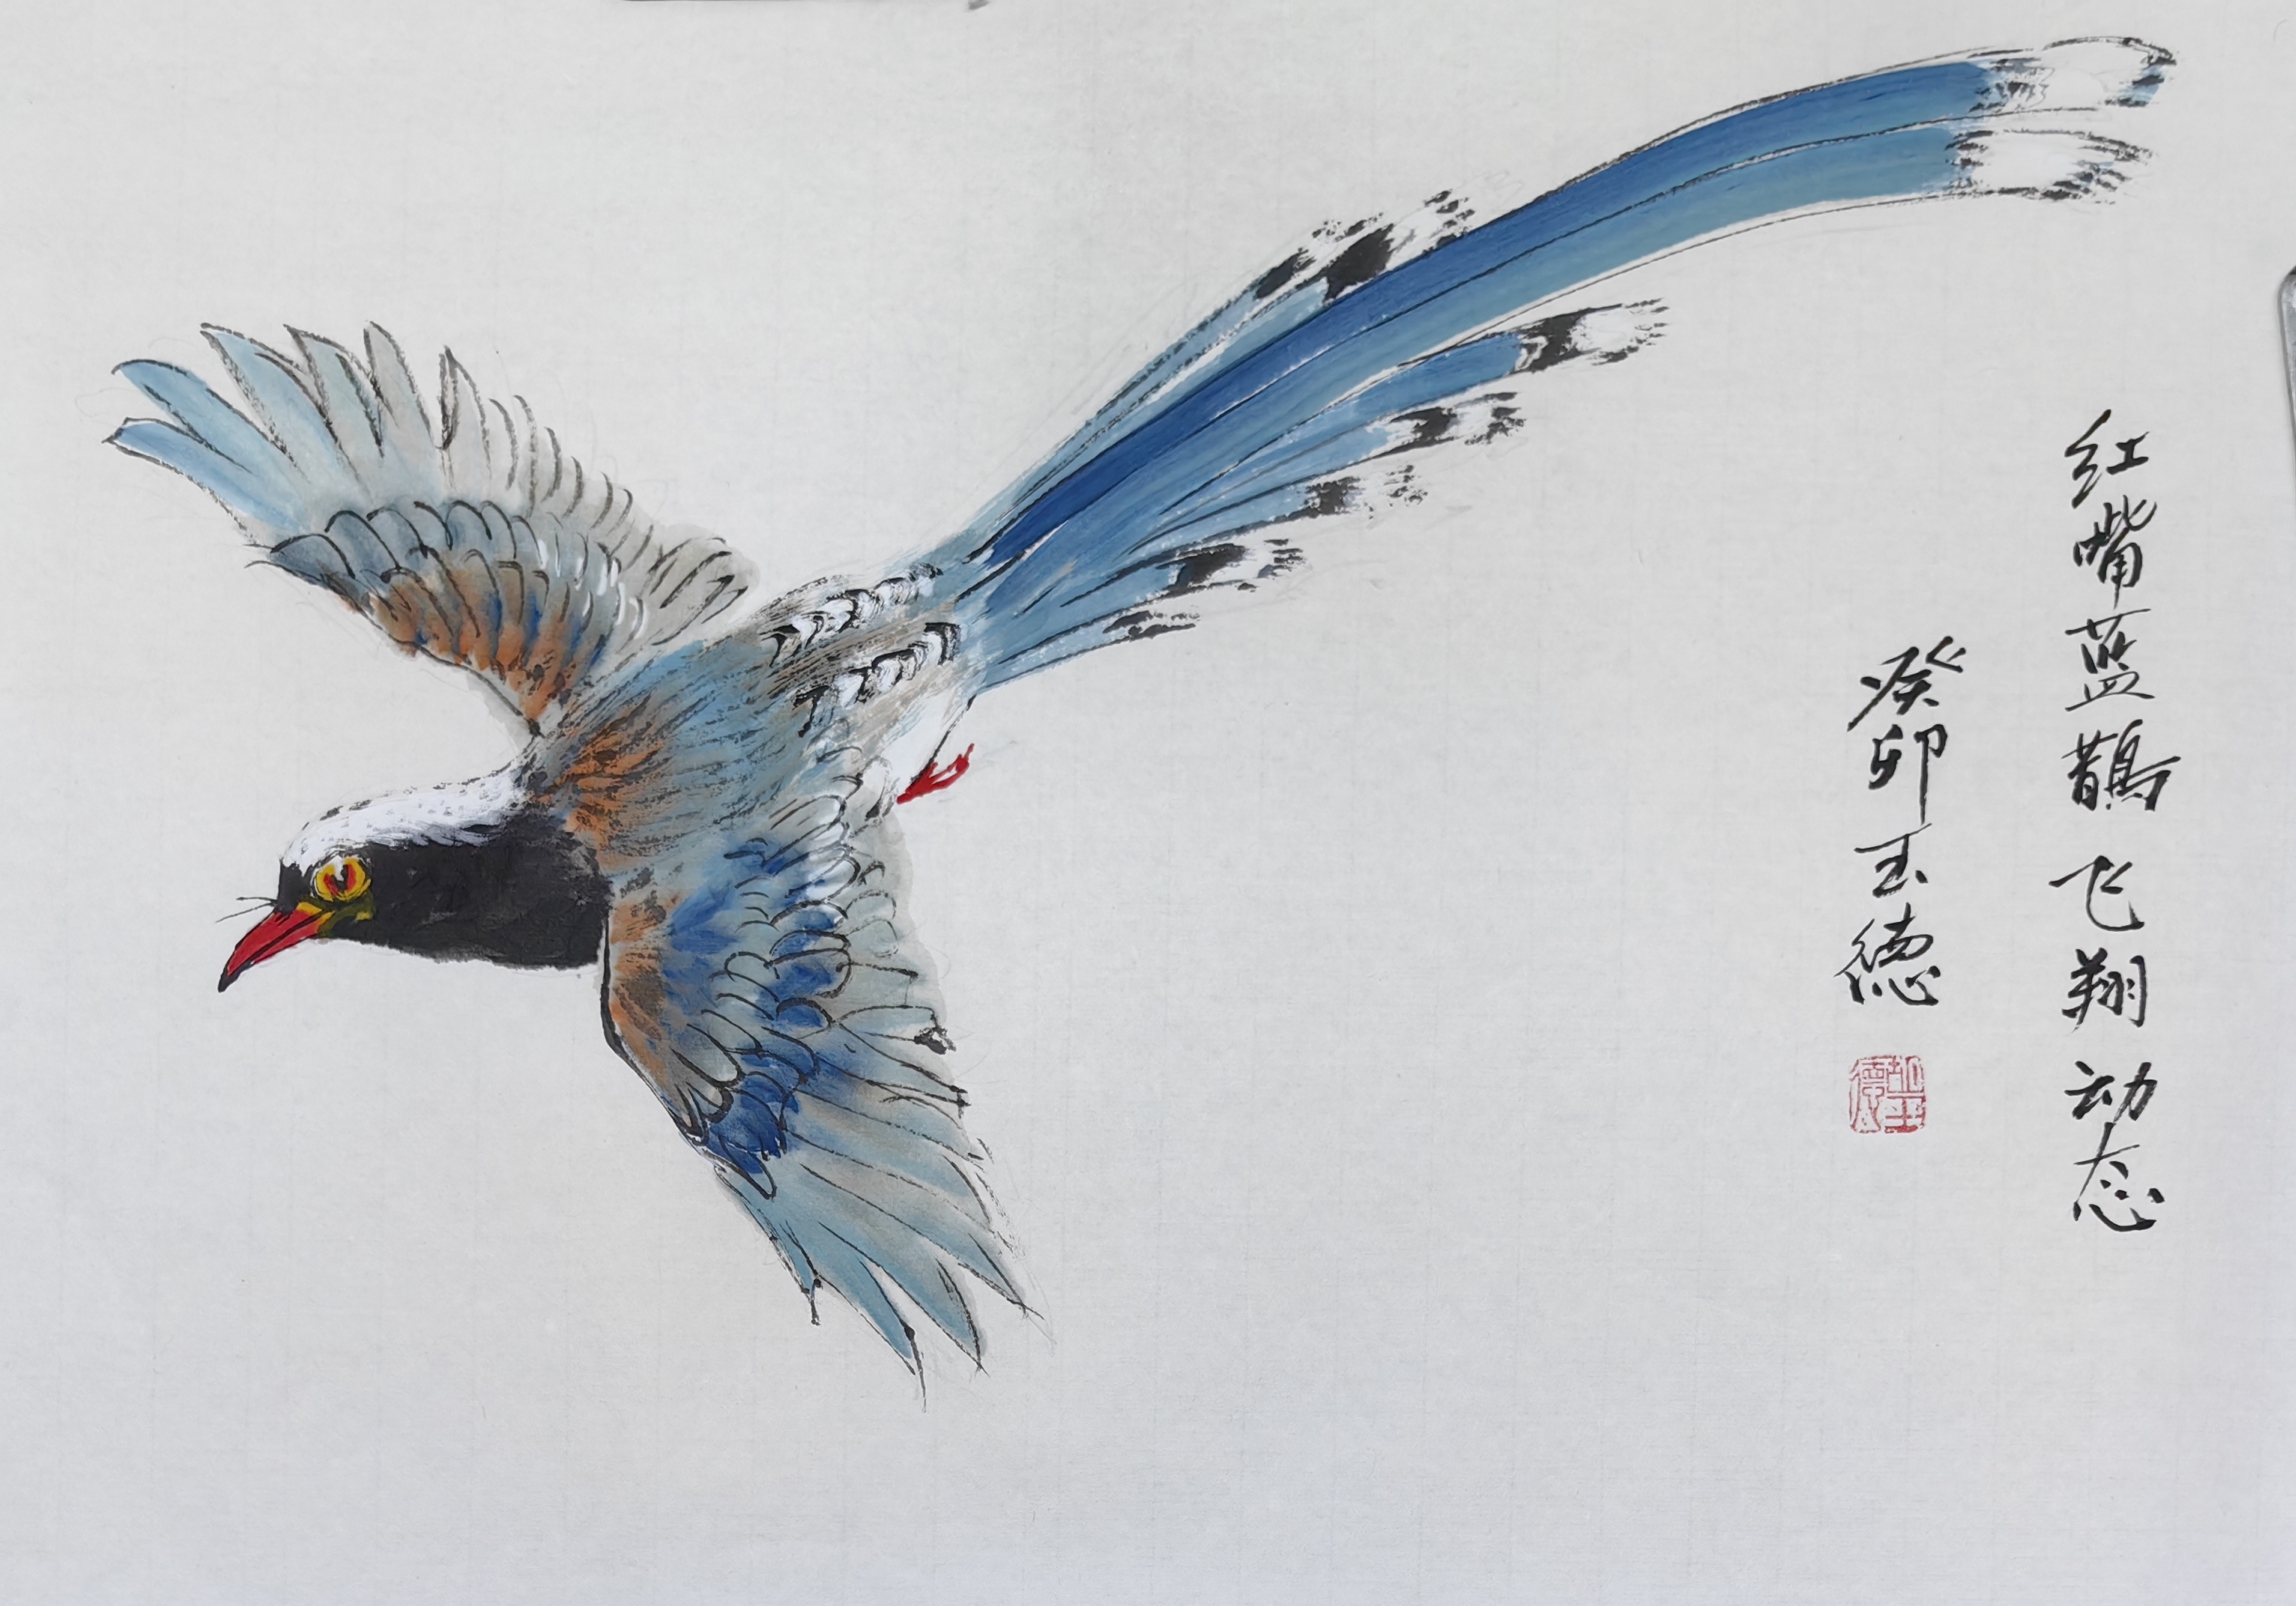 红嘴蓝鹊飞翔动态
癸卯玉德